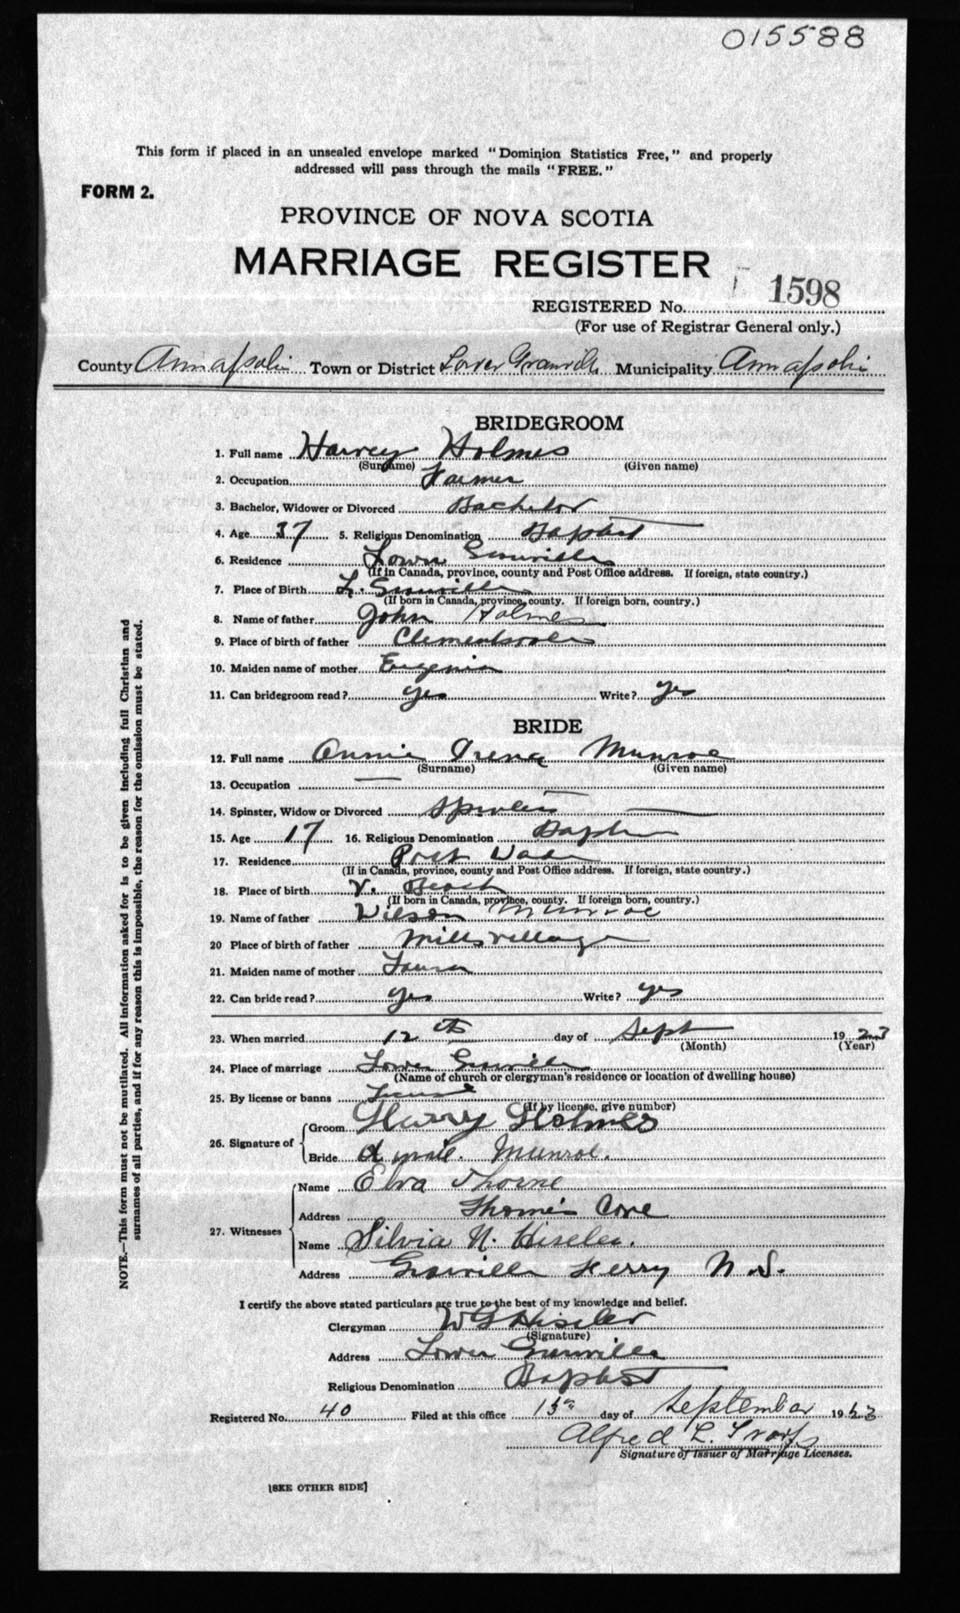 015588
This form if placed in an unsealed envelope marked "Dominion Statistics Free," and properly
addressed will pass through the mails "FREE."
FORM 2.
PROVINCE OF NOVA SCOTIA
MARRIAGE REGISTER
REGISTERED No. 1598
(For use of Registrar General only.)
County Annapolis Town or District Lower Granville Municipality Annapolis
BRIDEGROOM
1. Full name Harvey Holmes
(Surname) (Given name)
2. Occupation Farmer
3. Bachelor, Widower or Divorced Bachelor
4. Age 37 5. Religious Denomination Baptist
6. Residence Lower Granville
(If in Canada, province, county and Post Office address. If foreign, state country.)
7. Place of Birth L. Granville
(If born in Canada, province, county. If foreign born, country.)
8. Name of father John Holmes
9. Place of birth of father Clementsvale
10. Maiden name of mother Eugenia
11. Can bridegroom read? yes Write? yes
BRIDE
12. Full name Annie Irene Munroe
(Surname) (Given name)
13. Occupation —
14. Spinster, Widow or Divorced Spinster
15. Age 17 16. Religious Denomination Baptist
17. Residence Port Wade
(If in Canada, province, county and Post Office address. If foreign, state country.)
18. Place of birth V. Beach
(If born in Canada, province, county. If foreign born, country.)
19. Name of father Wilson Munroe
20 Place of birth of father Mills village
21. Maiden name of mother Laura
22. Can bride read? yes Write? yes
23. When married 12th day of Sept 1923
(Month) (Year)
24. Place of marriage Lower Granville
(Name of church or clergyman's residence or location of dwelling house)
25. By license or banns License
(If by license, give number)
26. Signature of Groom Harry Holmes
Bride Munroe.
27. Witnesses Name Elva Thorne
Address Thorne's Cove
Name Silvia N. Hisler.
Address Granville Ferry N.S.
I certify the above stated particulars are true to the best of my knowledge and belief.
Clergyman Hisler
(Signature)
Address Lower Granville
Religious Denomination Baptist
Registered No. 40 Filed at this office 15th day of September 1923
Alfred L.
Signature of Issuer of Marriage Licenses.
[SEE OTHER SIDE]
NOTE.—This form must not be mutilated. All information asked for is to be given including full Christian and
surnames of all parties, and if for any reason this is impossible, the reason for the omission must be stated.